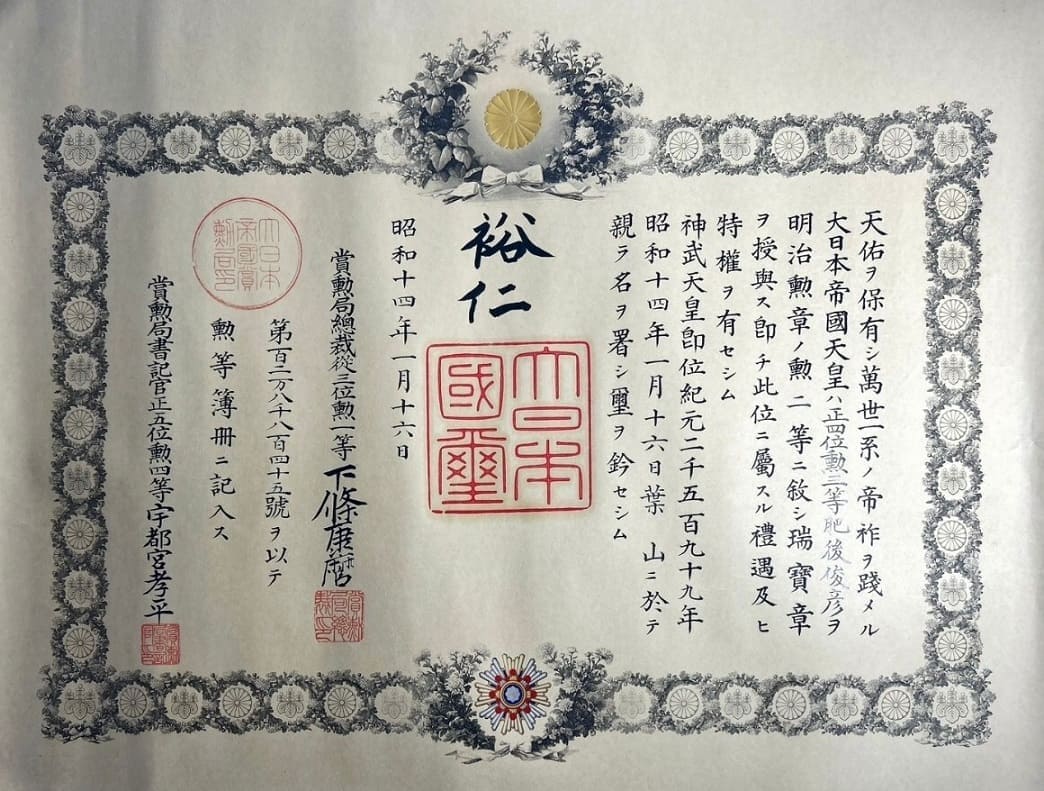 天佑ヲ保有シ萬世一系ノ帝祚ヲ踐メル
大日本帝國天皇ハ正四位勲三等肥後俊彦ヲ
明治勲章ノ勲二等ニ敍シ瑞寶章
ヲ授與ス卽チ此位ニ屬スル禮遇及ヒ
特權ヲ有セシム
神武天皇卽位紀元二千五百九十九年
昭和十四年一月十六日葉山ニ於テ
親ラ名ヲ署シ璽ヲ鈐セシム
裕仁
大日本國璽
昭和十四年一月十六日
賞勲局總裁從三位勲一等下條康麿
第百二万八千八百四十五號ヲ以テ
勲等簿册ニ記入ス
大日本帝國賞勲局印
賞勲局書記官正五位勲四等宇都宮孝平